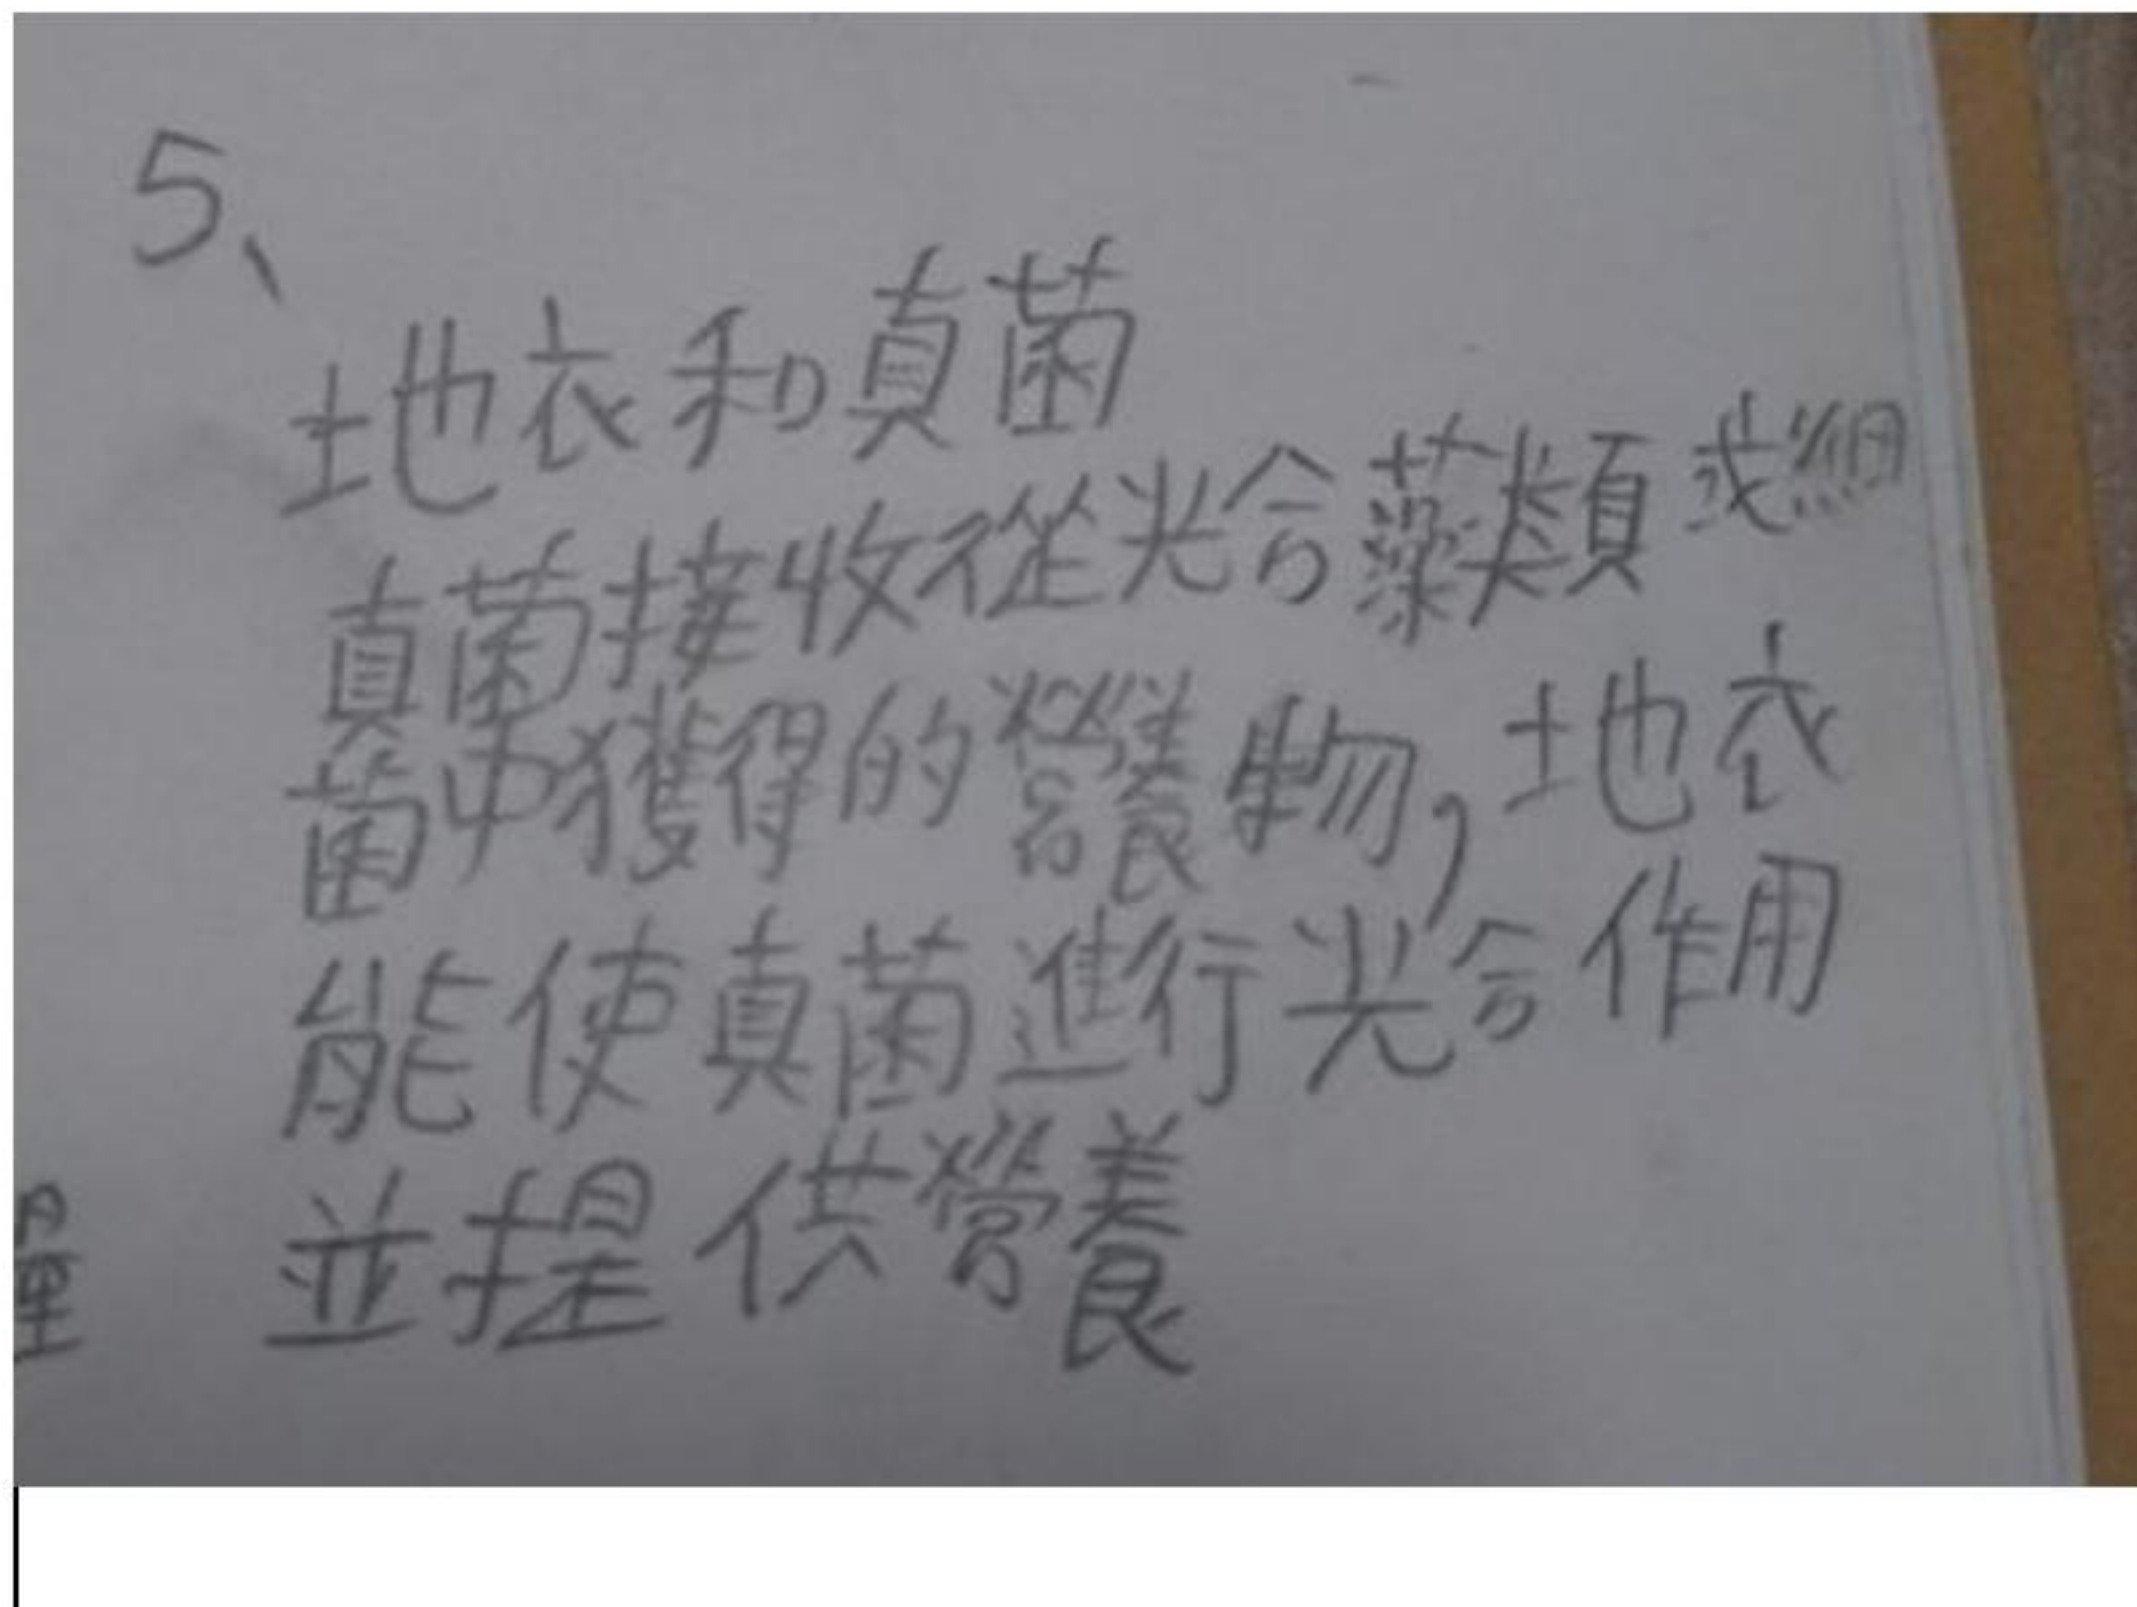 5、
地衣和真菌
真菌接收從光合藻類或細
菌中獲得的營養物,地衣
能使真菌進行光合作用
並提供營養